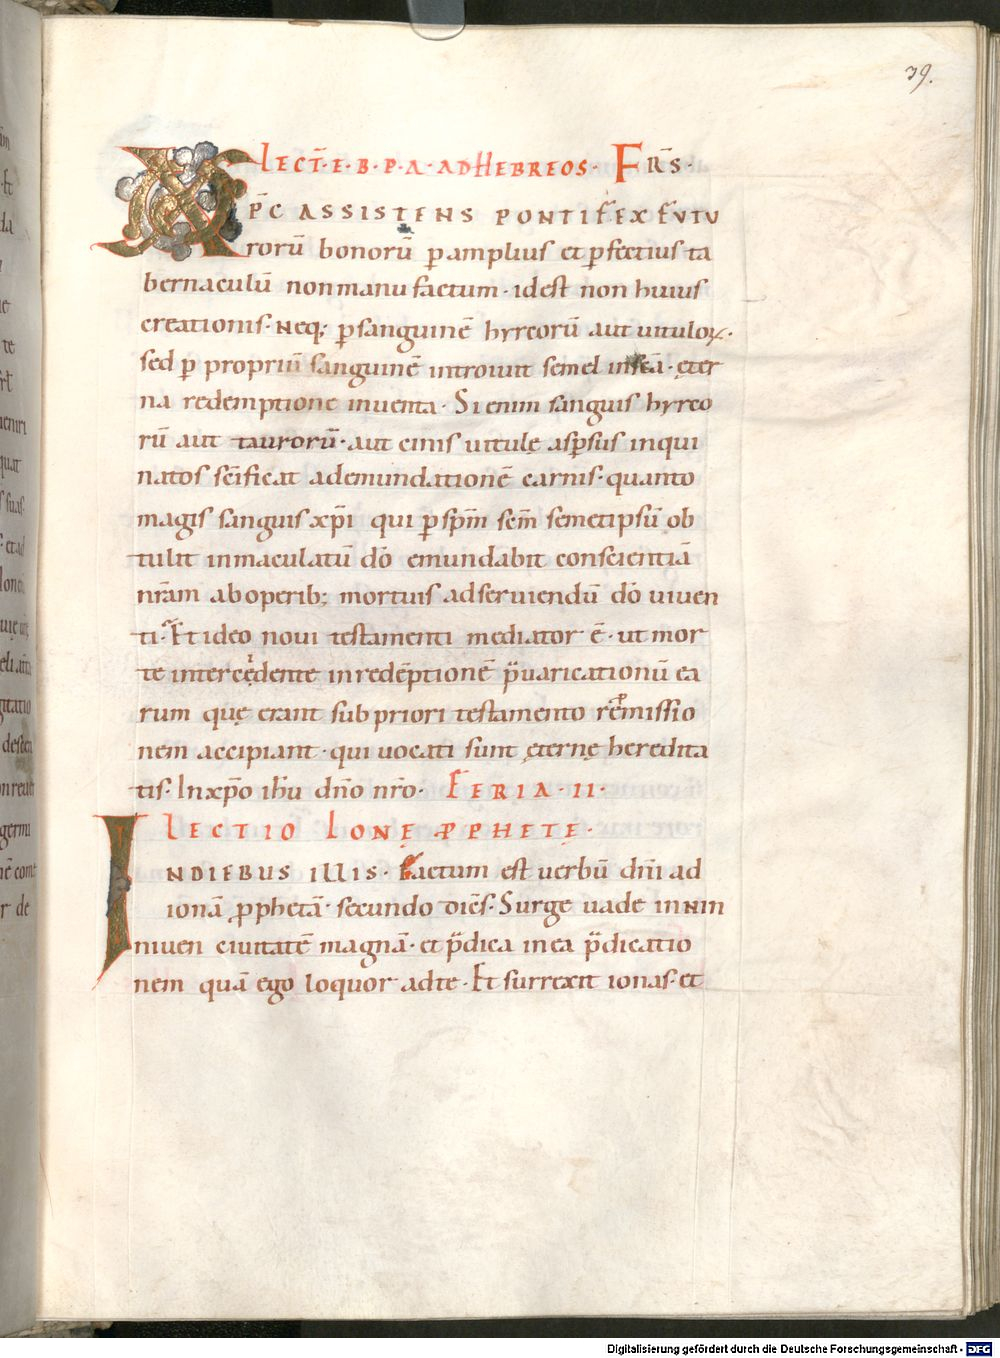 39.
LECT̄·E·B·P·A·AD HEBREOS· FR̄S·
XP̄C ASSISTENS PONTIFEX FVTV
rorū bonorū ꝑ amplius et ꝑfectius ta
bernaculū non manu factum· id est non huius
creationis· Neq; ꝑ sanguinē hyrcorū aut uituloꝝ·
sed ꝑ propriū sanguinē introiuit semel in sc̄a· ęter
na redemptione inuenta· Si enim sanguis hyrco
rū aut taurorū· aut cinis uitulę asꝑsus inqui
natos sc̄ificat ad emundationē carnis· quanto
magis sanguis xp̄i qui ꝑ sp̄m sc̄m semetipsū ob
tulit inmaculatū dō emundabit conscientiā
nr̄am ab operib; mortuis ad seruiendū dō uiuen
ti· Et ideo noui testamenti mediator ē· ut mor
te intercędente in redēptionē p̄uaricationū ea
rum quę erant sub priori testamento rēmissio
nem accipiant· qui uocati sunt ęternę heredita
tis· In xp̄o ih̄u dn̄o nr̄o· FERIA·II·
LECTIO IONĘ PPHETĘ·
IN DIEBUS ILLIS· Factum est uerbū dn̄i ad
ionā ꝓphetā· secundo dicēs· Surge uade in Nin
niuen ciuitatē magnā· et p̄dica in ea p̄dicatio
nem quā ego loquor ad te· Et surrexit ionas· et
Digitalisierung gefördert durch die Deutsche Forschungsgemeinschaft - DFG